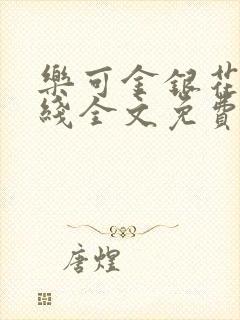 樂可金銀花
綫全文免費
唐煌